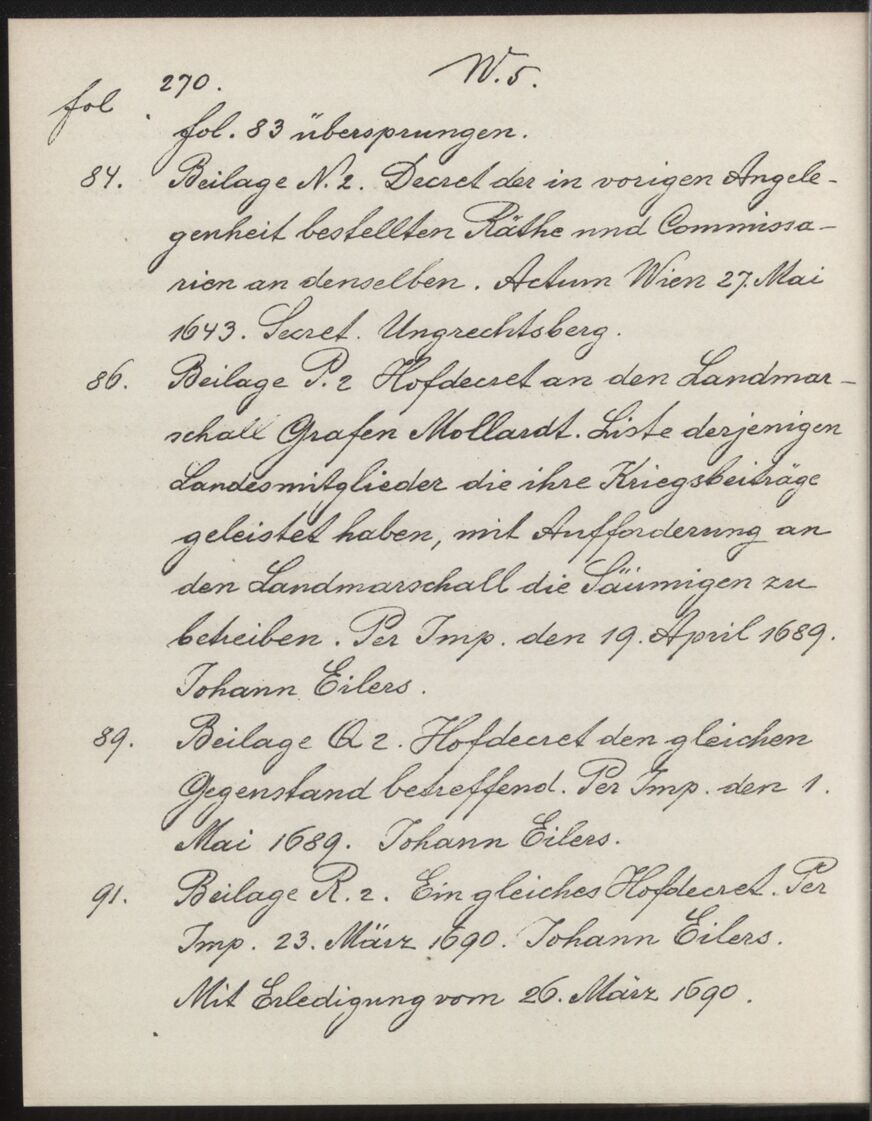 270. W. 5.
fol
fol. 83 übersprungen.
84. Beilage N. 2. Decret der in vorigen Angele-
genheit bestellten Räthe und Commissa-
rien an denselben. Actum Wien 27. Mai
1643. Secret. Ungrechtsberg.
86. Beilage P. 2 Hofdecret an den Landmar-
schall Grafen Mollardt. Liste derjenigen
Landesmitglieder die ihre Kriegsbeiträge
geleistet haben, mit Aufforderung an
den Landmarschall die Säumigen zu
betreiben. Per Imp. den 19. April 1689.
Johann Eilers.
89. Beilage Q 2. Hofdecret den gleichen
Gegenstand betreffend. Per Imp. den 1.
Mai 1689. Johann Eilers.
91. Beilage R. 2. Ein gleiches Hofdecret. Per
Imp. 23. März 1690. Johann Eilers.
Mit Erledigung vom 26. März 1690.